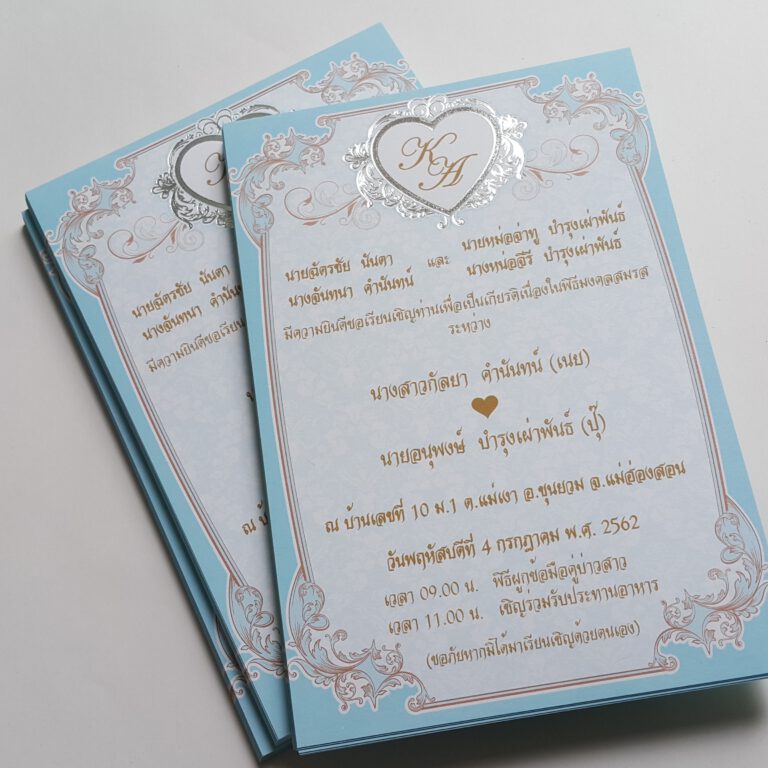 K
A
นายฉัตรชัย นันตา และ นายหม่อว่าทู บำรุงเผ่าพันธ์
นางจันทนา คำนันทน์ นางหน่อจีรี บำรุงเผ่าพันธ์
มีความยินดีขอเรียนเชิญท่านเพื่อเป็นเกียรติเนื่องในพิธีมงคลสมรส
ระหว่าง
นางสาวกัลยา คำนันทน์ (เนย)
นายอนุพงษ์ บำรุงเผ่าพันธ์ (ปุ๊)
ณ บ้านเลขที่ 10 ม.1 ต.แม่เงา อ.ขุนยวม จ.แม่ฮ่องสอน
วันพฤหัสบดีที่ 4 กรกฎาคม พ.ศ. 2562
เวลา 09.00 น. พิธีผูกข้อมือคู่บ่าวสาว
เวลา 11.00 น. เชิญร่วมรับประทานอาหาร
(ขอภัยหากมิได้มาเรียนเชิญด้วยตนเอง)
นายฉัตรชัย นันตา
นางจันทนา คำนันท
มีความยินดีขอเรียน
ณ บ้า